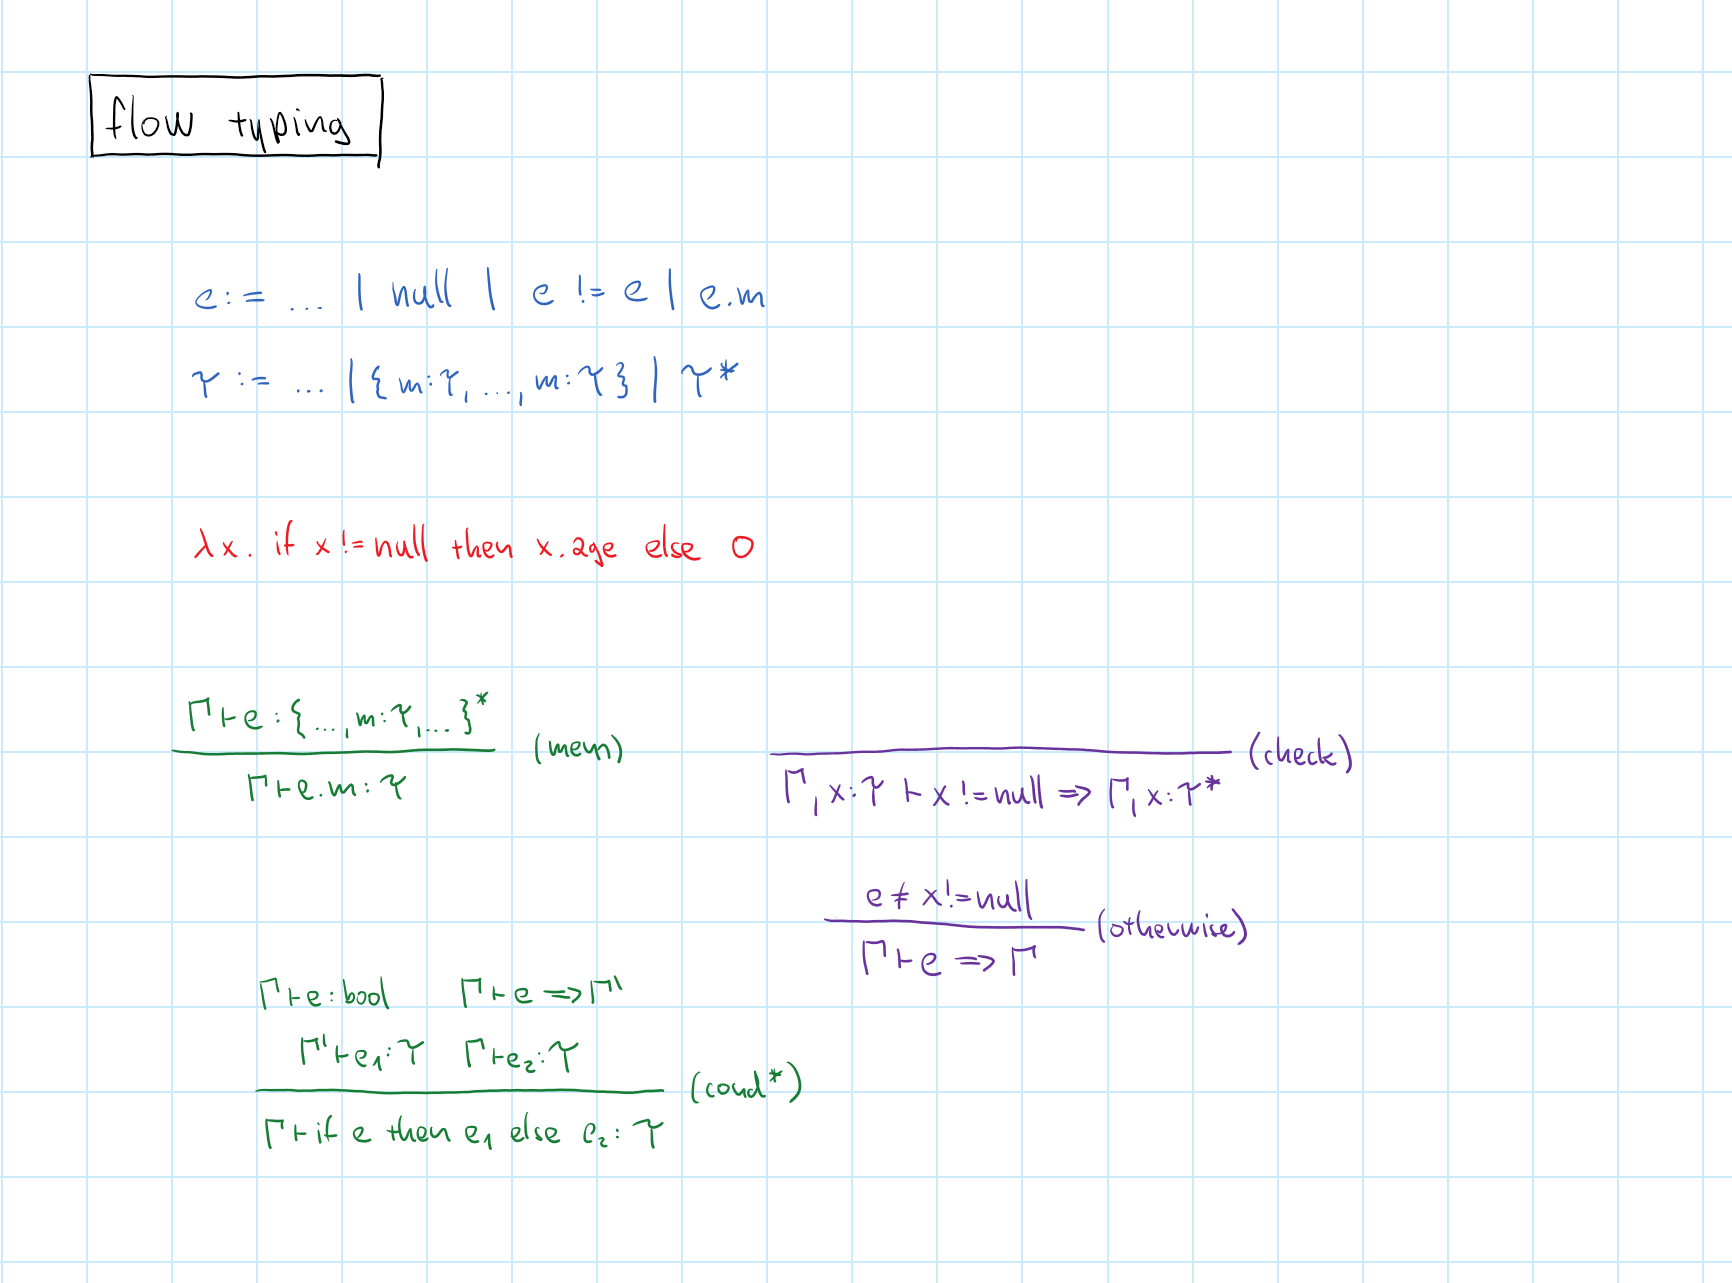 flow typing
e := ... | null | e != e | e.m
τ := ... | { m:τ, ..., m:τ } | τ*
λx. if x != null then x.age else 0
Γ ⊢ e : {..., m:τ, ...}*
(mem)
Γ ⊢ e.m : τ
(check)
Γ, x:τ ⊢ x != null => Γ, x:τ*
e ≠ x != null
(otherwise)
Γ ⊢ e => Γ
Γ ⊢ e : bool Γ ⊢ e => Γ'
Γ' ⊢ e₁ : τ Γ ⊢ e₂ : τ
(cond*)
Γ ⊢ if e then e₁ else e₂ : τ